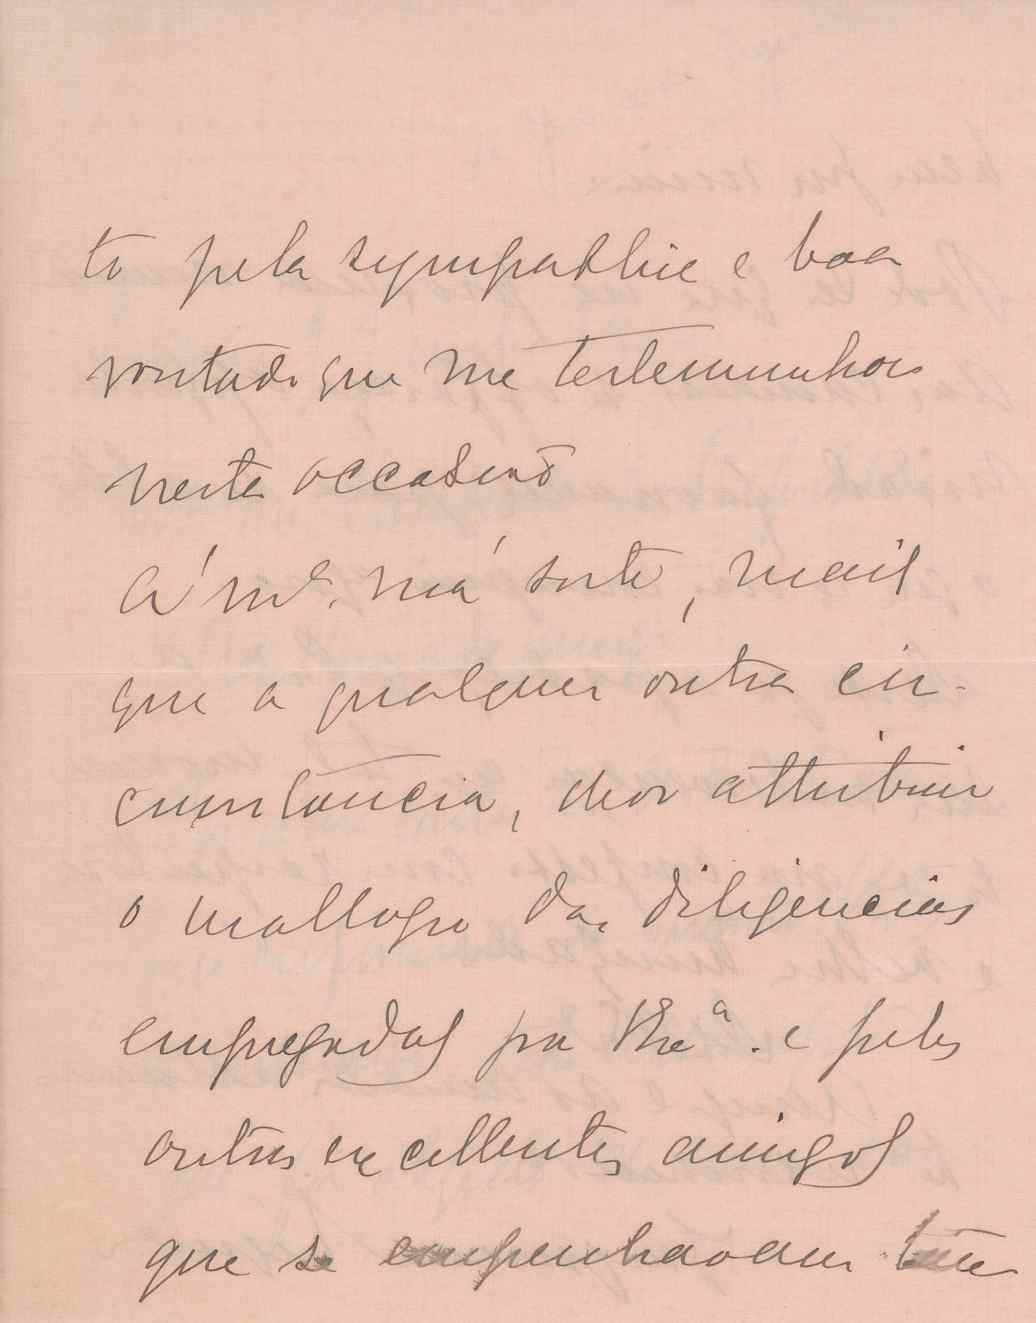 to pela sympathia e boa
vontade que me testemunhou
nesta occasião
A' mª. má sorte, mais
que a qualquer outra cir-
cunstancia, devo attribuir
o mallogro das diligencias
empregadas por Vª Exª. e pelos
outros excellentes amigos
que se empenhavam